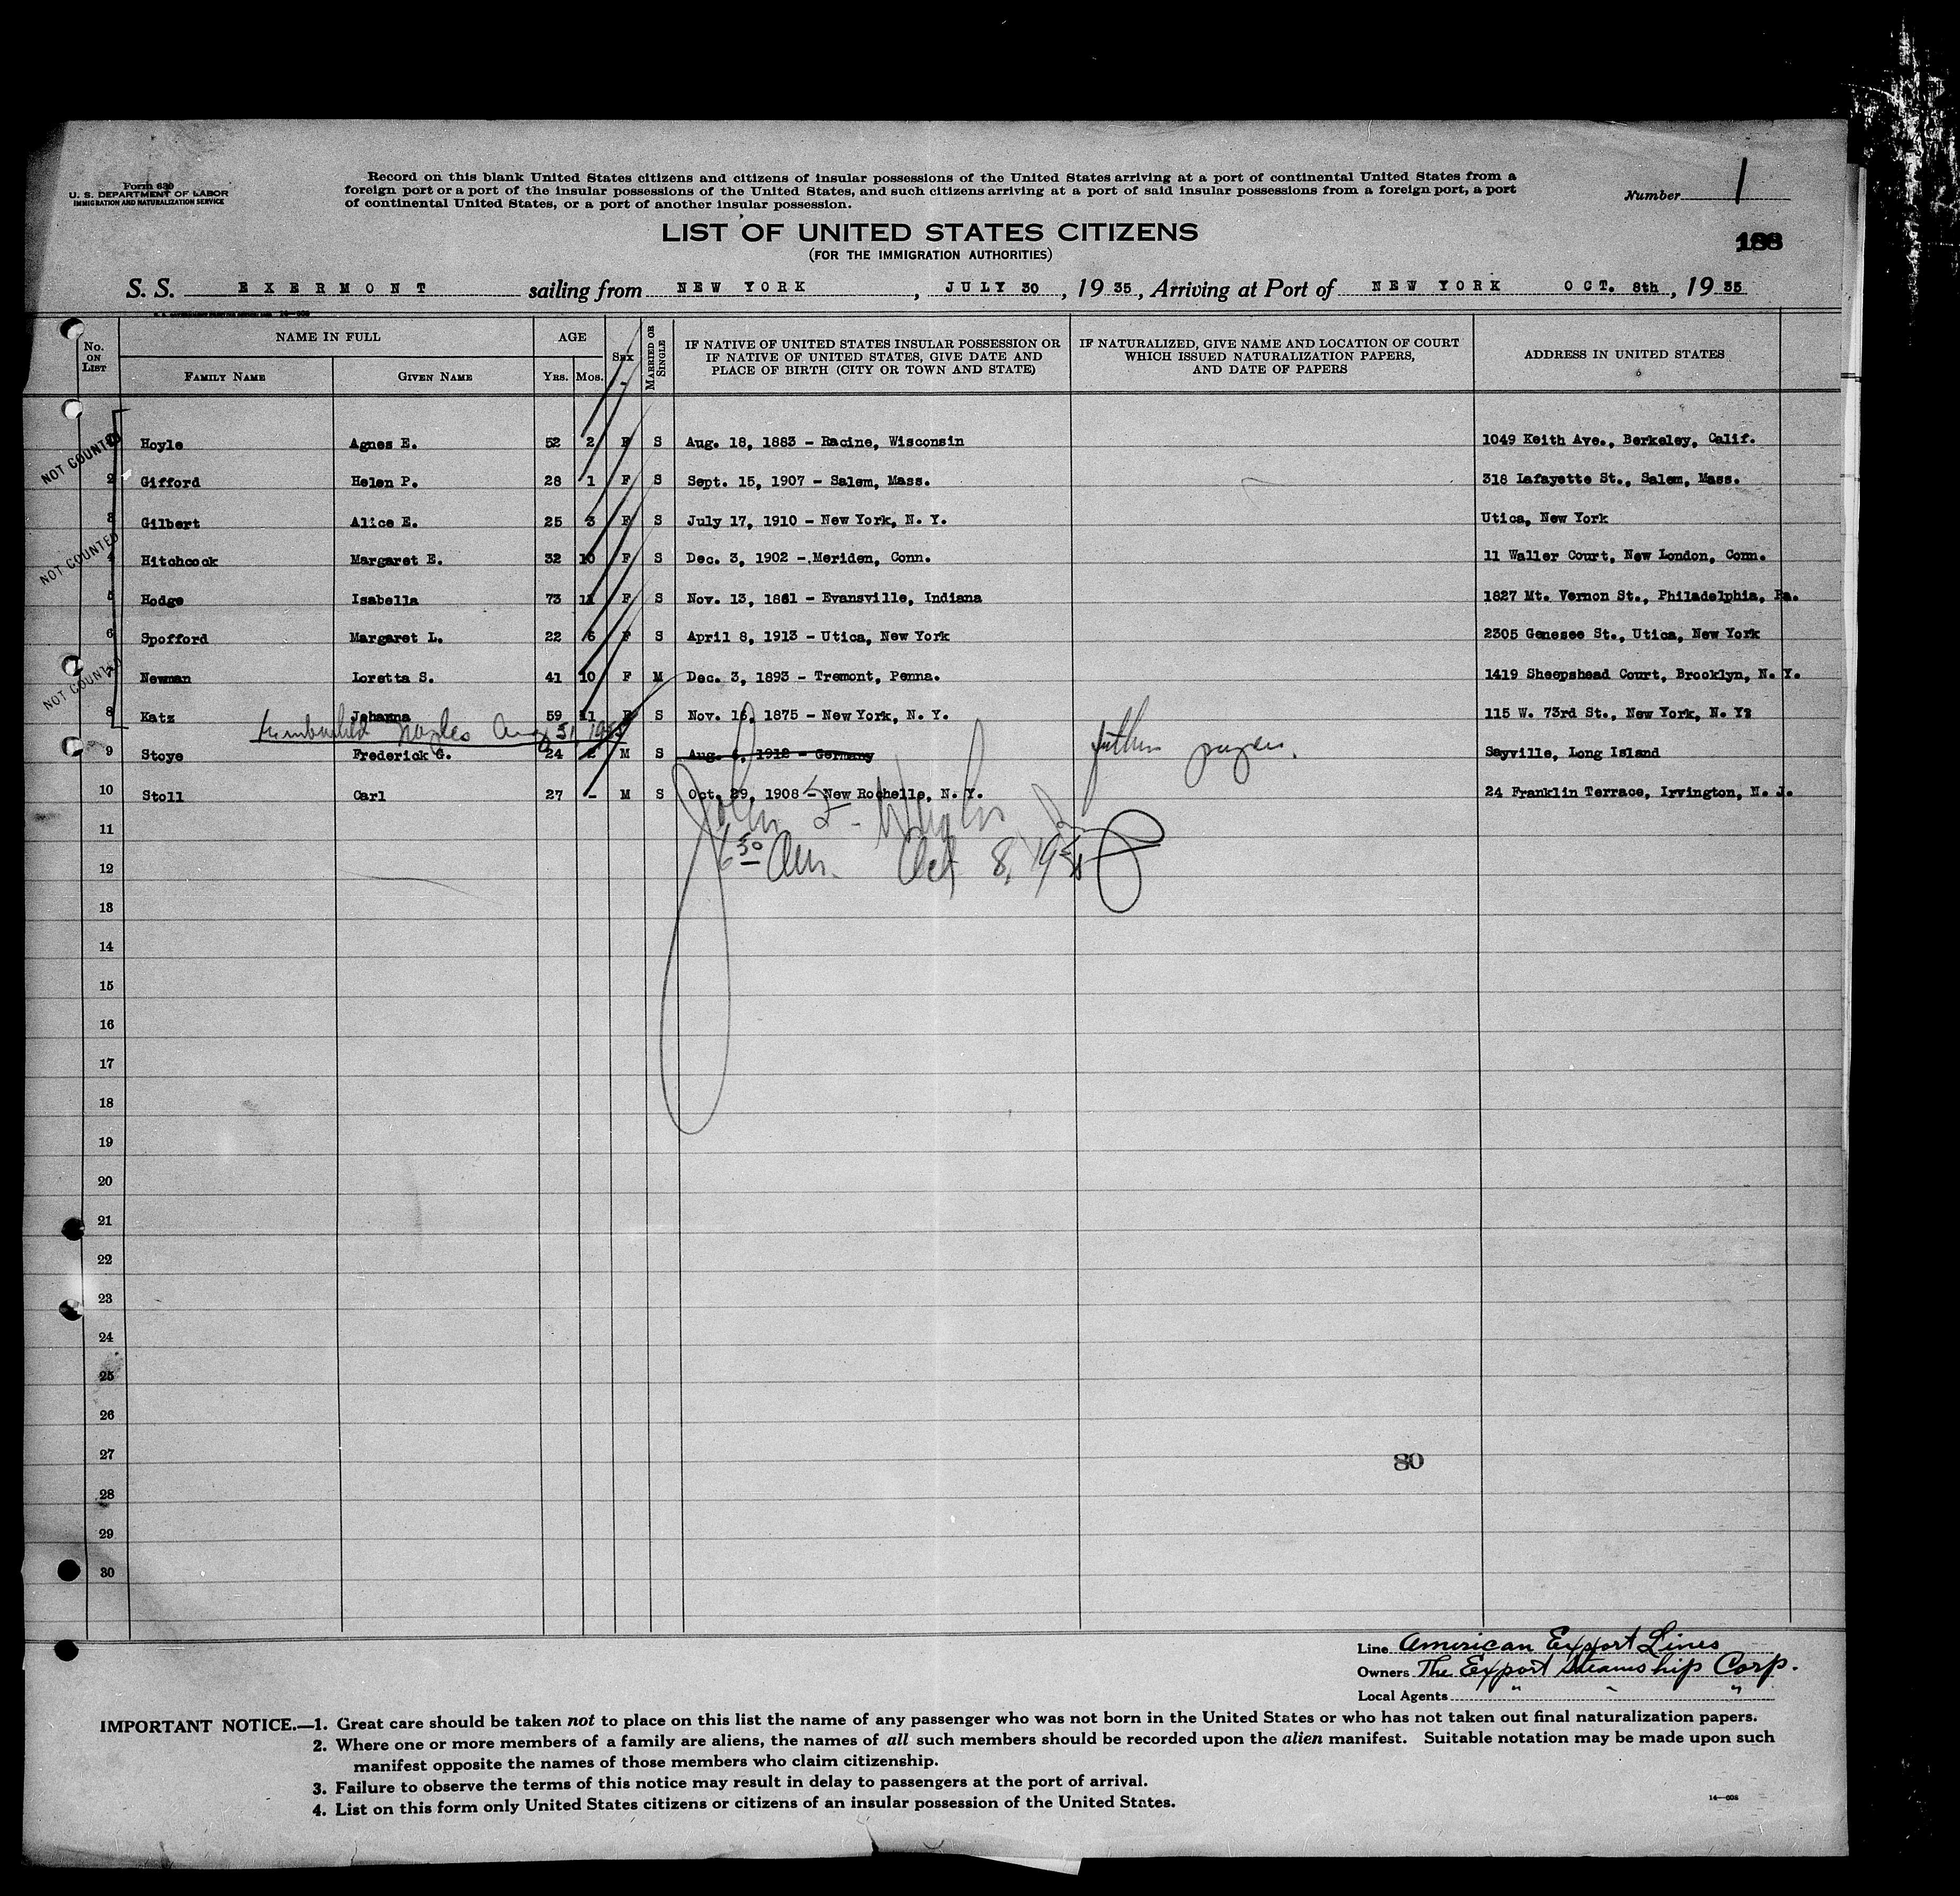 Form 630
U. S. DEPARTMENT OF LABOR
IMMIGRATION AND NATURALIZATION SERVICE
Record on this blank United States citizens and citizens of insular possessions of the United States arriving at a port of continental United States from a
foreign port or a port of the insular possessions of the United States, and such citizens arriving at a port of said insular possessions from a foreign port, a port
of continental United States, or a port of another insular possession.
Number 1
LIST OF UNITED STATES CITIZENS
(FOR THE IMMIGRATION AUTHORITIES)
S. S. EXERMONT sailing from NEW YORK, JULY 30, 1935, Arriving at Port of NEW YORK OCT. 8th, 1935
No. ON LIST NAME IN FULL AGE SEX MARRIED OR SINGLE IF NATIVE OF UNITED STATES INSULAR POSSESSION OR IF NATIVE OF UNITED STATES, GIVE DATE AND PLACE OF BIRTH (CITY OR TOWN AND STATE) IF NATURALIZED, GIVE NAME AND LOCATION OF COURT WHICH ISSUED NATURALIZATION PAPERS, AND DATE OF PAPERS ADDRESS IN UNITED STATES
FAMILY NAME GIVEN NAME YRS. MOS.
NOT COUNTED
Hoyle Agnes E. 52 2 F S Aug. 18, 1883 - Racine, Wisconsin 1049 Keith Ave., Berkeley, Calif.
2 Gifford Helen P. 28 1 F S Sept. 15, 1907 - Salem, Mass. 318 Lafayette St., Salem, Mass.
3 Gilbert Alice E. 25 3 F S July 17, 1910 - New York, N. Y. Utica, New York
NOT COUNTED
4 Hitchcock Margaret E. 32 10 F S Dec. 3, 1902 - Meriden, Conn. 11 Waller Court, New London, Conn.
5 Hodge Isabella 73 11 F S Nov. 13, 1861 - Evansville, Indiana 1827 Mt. Vernon St., Philadelphia, Pa.
6 Spofford Margaret L. 22 6 F S April 8, 1913 - Utica, New York 2305 Genesee St., Utica, New York
NOT COUNTED
Newman Loretta S. 41 10 F M Dec. 3, 1893 - Tremont, Penna. 1419 Sheepshead Court, Brooklyn, N. Y.
8 Katz Johanna 59 11 F S Nov. 16, 1875 - New York, N. Y. 115 W. 73rd St., New York, N. Y?
Naples Aug 31 1935
9 Stoye Frederick G. 24 2 M S Aug. 4, 1912 - Germany father papers. Sayville, Long Island
10 Stoll Carl 27 - M S Oct. 29, 1908 - New Rochelle, N. Y. 24 Franklin Terrace, Irvington, N. J.
John
6 30 Am. Oct 8, 1935
11
12
13
14
15
16
17
18
19
20
21
22
23
24
25
26
27
80
28
29
30
Line American Export Lines
Owners The Export Steamship Corp.
Local Agents " " "
IMPORTANT NOTICE.—1. Great care should be taken not to place on this list the name of any passenger who was not born in the United States or who has not taken out final naturalization papers.
2. Where one or more members of a family are aliens, the names of all such members should be recorded upon the alien manifest. Suitable notation may be made upon such
manifest opposite the names of those members who claim citizenship.
3. Failure to observe the terms of this notice may result in delay to passengers at the port of arrival.
4. List on this form only United States citizens or citizens of an insular possession of the United States.